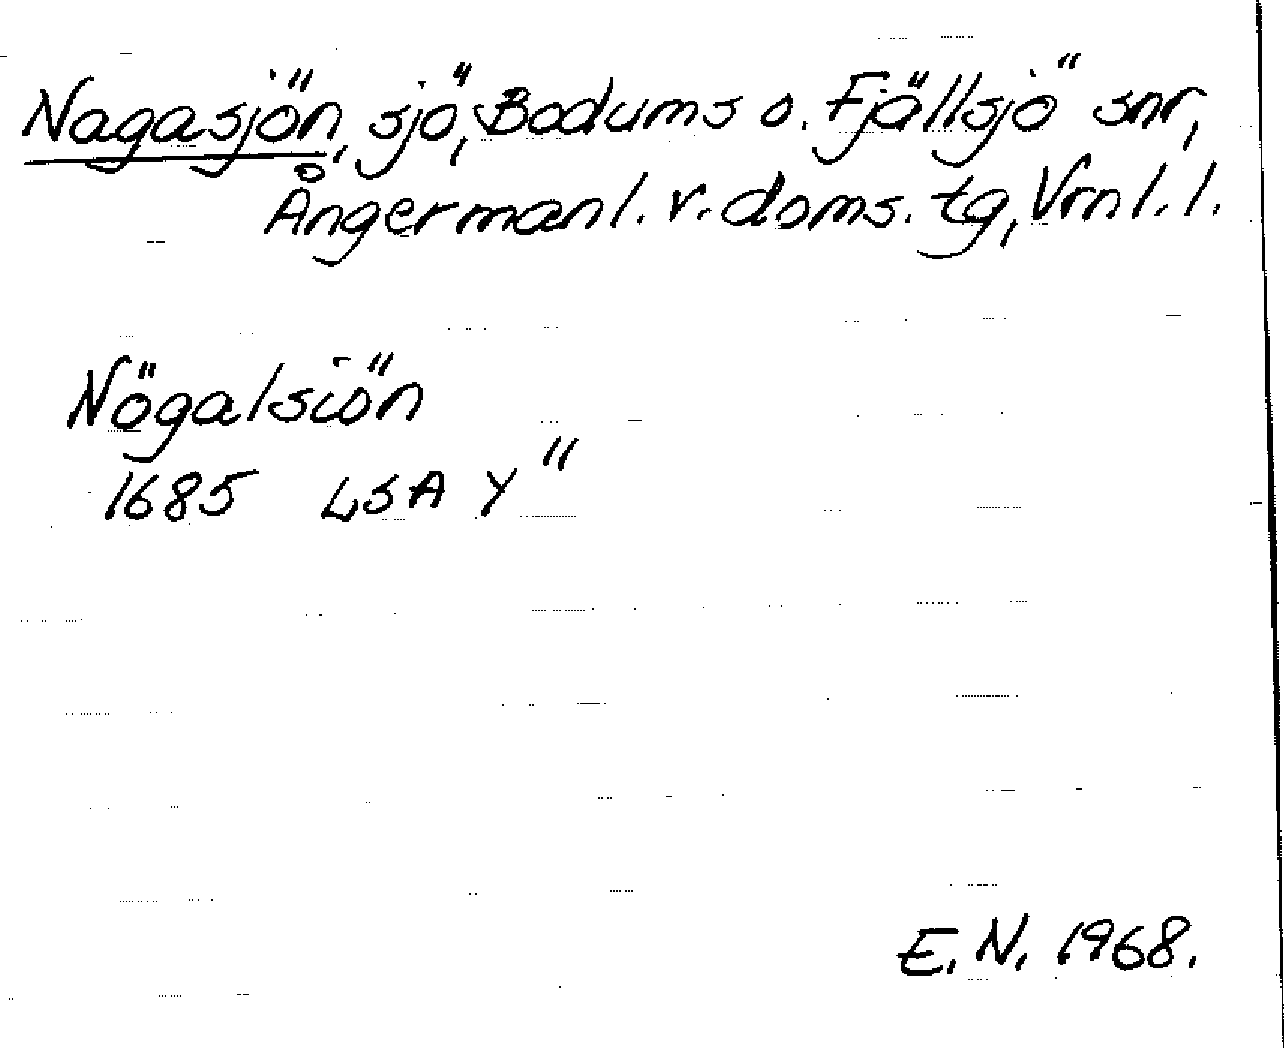 Nagasjön, sjö, Bodums o. Fjällsjö snr,
Ångermanl. v. doms. tg, Vrnl. l.
Nögalsiön
1685 LSA Y"
E. N. 1968.